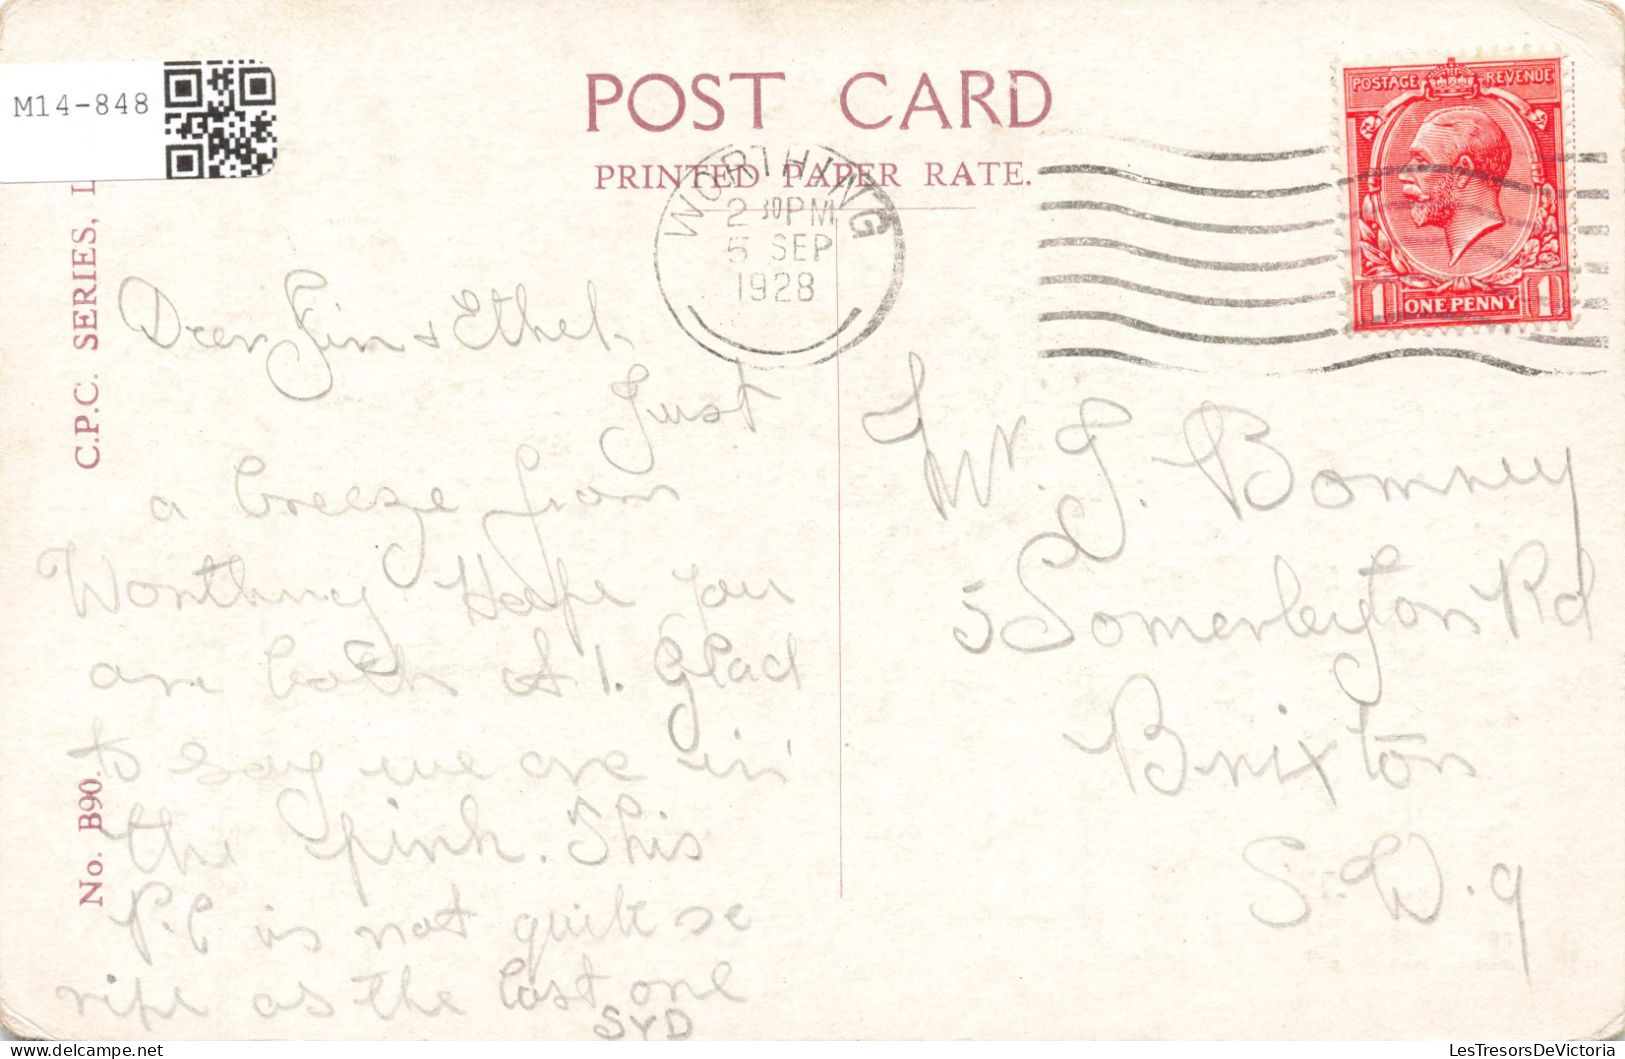 M14-848
POST CARD
PRINTED PAPER RATE.
WORTHING
2 30PM
5 SEP
1928
POSTAGE REVENUE
1 ONE PENNY 1
C.P.C. SERIES, L
No. B90.
Dear Jim & Ethel.
Just
a breeze from
Worthing. Hope you
are both A.1. Glad
to say we are in
the pink. This
P.C is not quite so
ripe as the last one
SYD
Mr. J. Bomney
5 Somerleyton Rd
Brixton
S.W.9
LesTresorsDeVictoria